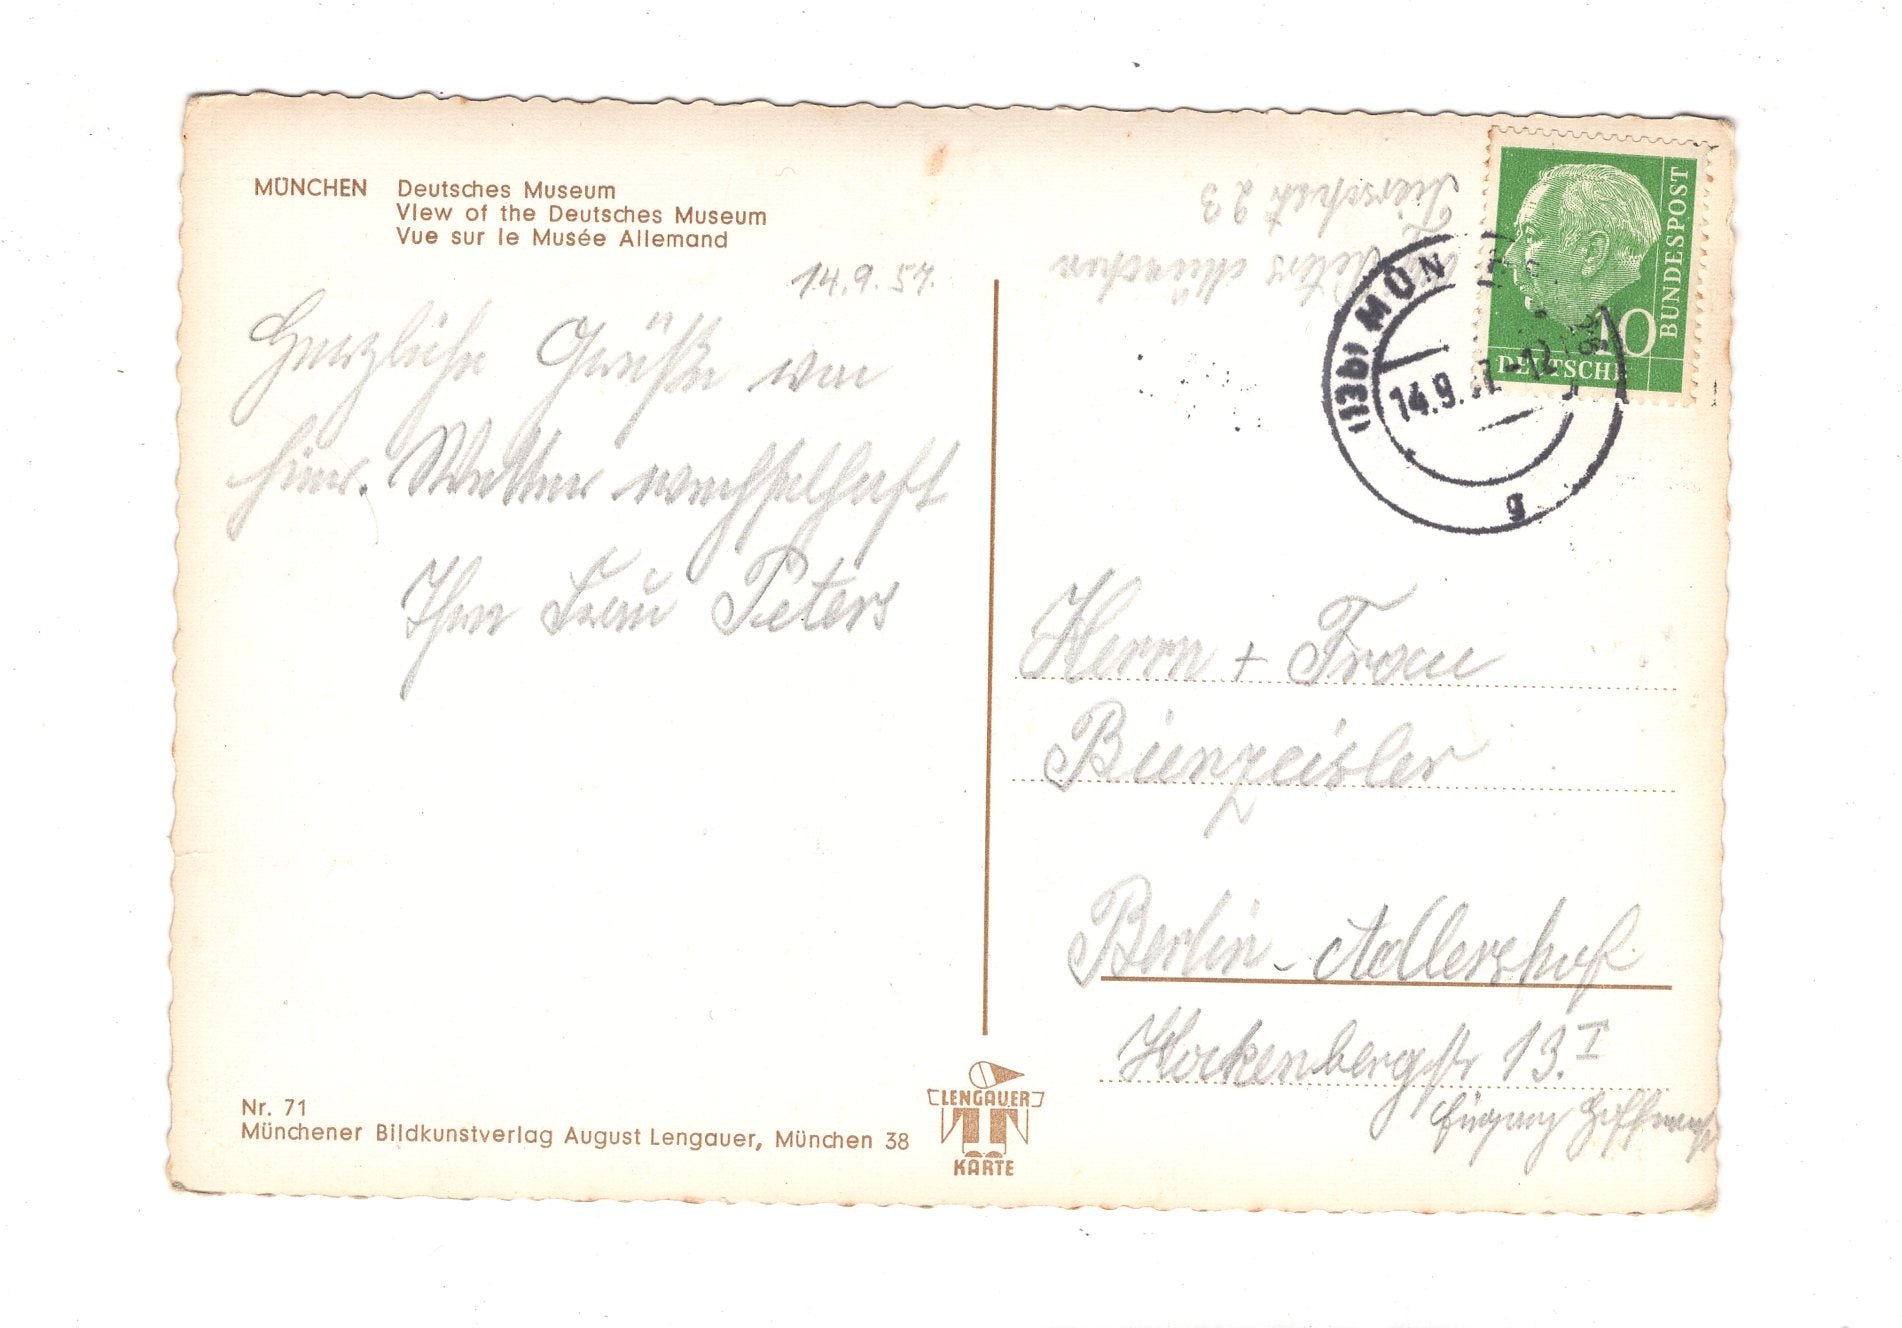 MÜNCHEN Deutsches Museum
View of the Deutsches Museum
Vue sur le Musée Allemand
14.9.57.
Herzliche Grüße von
hier. Wetter wechselhaft
Ihre Frau Peters
Nr. 71
Münchener Bildkunstverlag August Lengauer, München 38
LENGAUER
KARTE
Peters München
23
DEUTSCHE BUNDESPOST
10
(13b) MÜN
14.9.57-12
g
Herrn + Frau
Bienzeisler
Berlin-Adlershof
Hockenbergstr 13.I